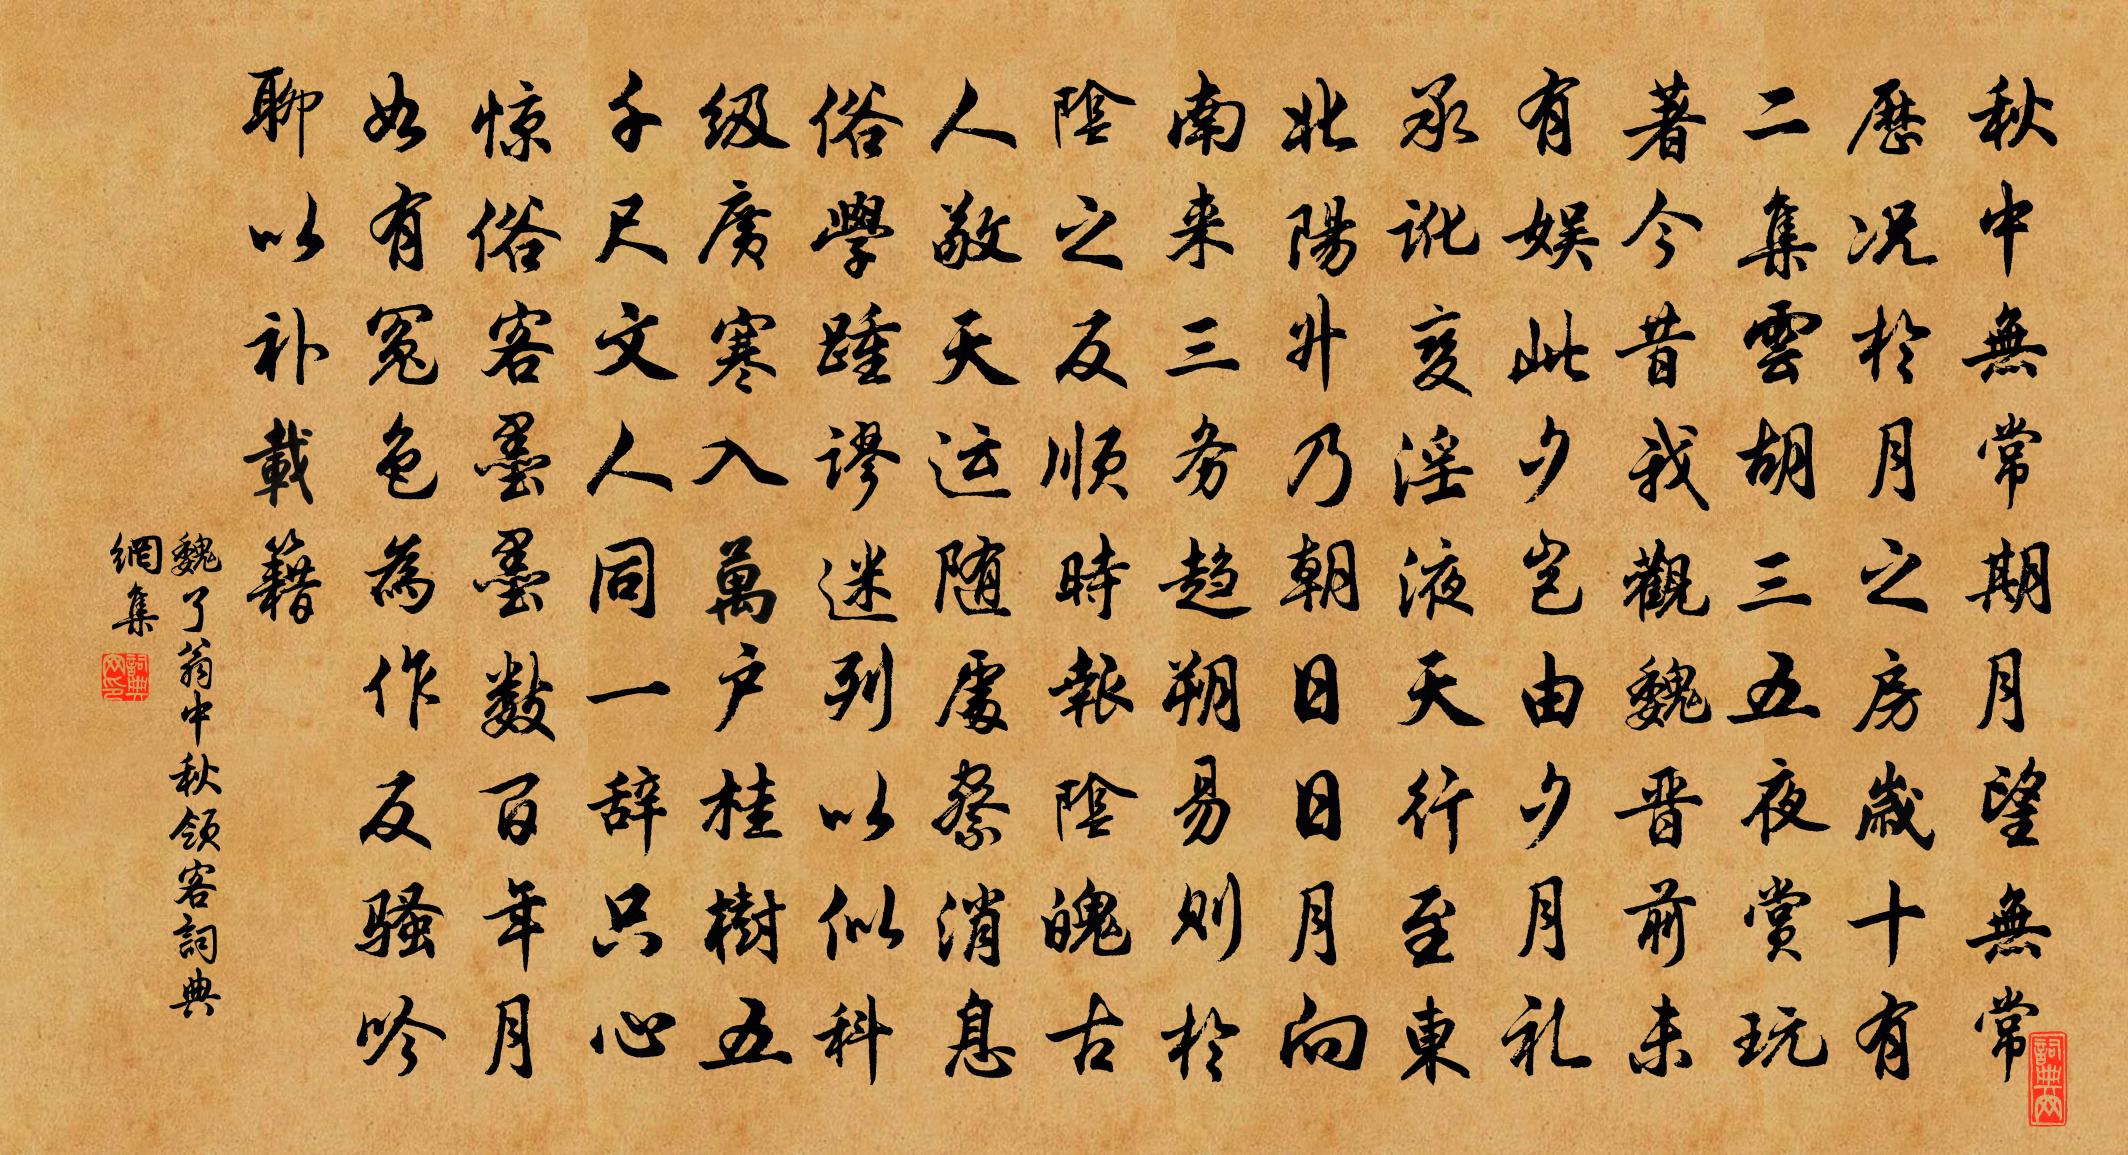 秋中無常期月望無常
歷況於月之房歲十有
二集雲胡三五夜賞玩
著今昔我觀魏晋前未
有娱此夕豈由夕月礼
承訛变淫液天行至東
北陽升乃朝日日月向
南来三务趋朔易则於
陰之反顺時報陰魄古
人敬天运随處察消息
俗學踵谬迷列以似科
级廣寒入萬户桂樹五
千尺文人同一辞只心
惊俗客墨墨数百年月
如有冤色為作反骚吟
聊以补載籍
魏了翁中秋領客詞典
網集
詞典网
詞典网印